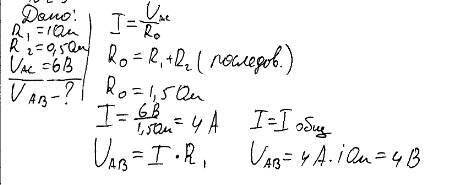 Дано:
R₁=1Ом
R₂=0,5Ом
U_AC=6В
U_AB-?
I=U_AC/R₀
R₀=R₁+R₂ (последов.)
R₀=1,5Ом
I=6В/1,5Ом=4А I=I общ
U_AB=I·R₁ U_AB=4А·1Ом=4В